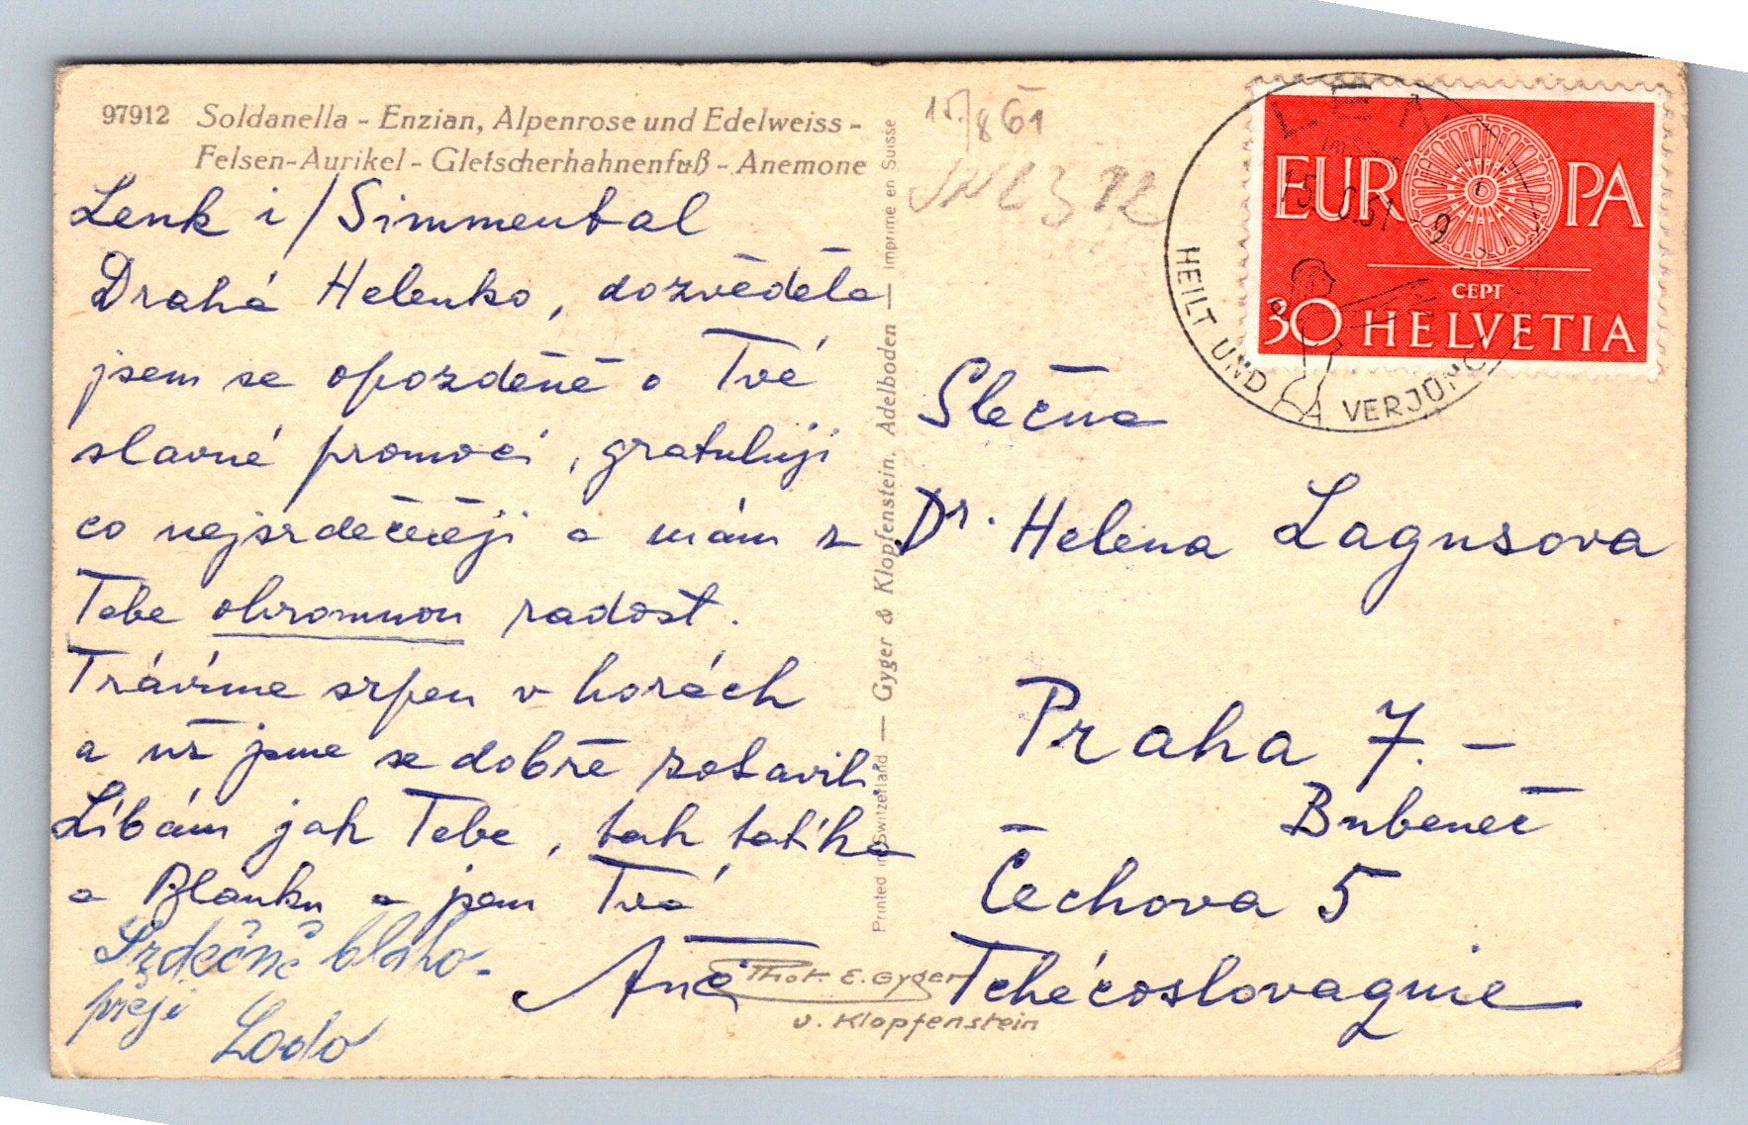 97912 Soldanella - Enzian, Alpenrose und Edelweiss -
Felsen-Aurikel - Gletscherhahnenfuß - Anemone
Lenk i/Simmental
Drahá Helenko, dozvěděla
jsem se opozděně o Tvé
slavné promoci, gratuluji
co nejsrdečněji a mám z
Tebe ohromnou radost.
Trávíme srpen v horách
a už jsme se dobře zotavili.
Líbám jak Tebe, tak taťka
a Blanku a jsem Tvá
Srdečně blaho-
přeji
Lodo
Printed in Switzerland — Gyger & Klopfenstein, Adelboden — Imprimé en Suisse
Phot. E. Gyger
u. Klopfenstein
15/8 61
LENK
15.8.61-9
HEILT UND VERJÜNGT
EUROPA
CEPT
30 HELVETIA
Slečna
Dr. Helena Lagusova
Praha 7. -
Bubeneč
Čechova 5
Tchécoslovaquie